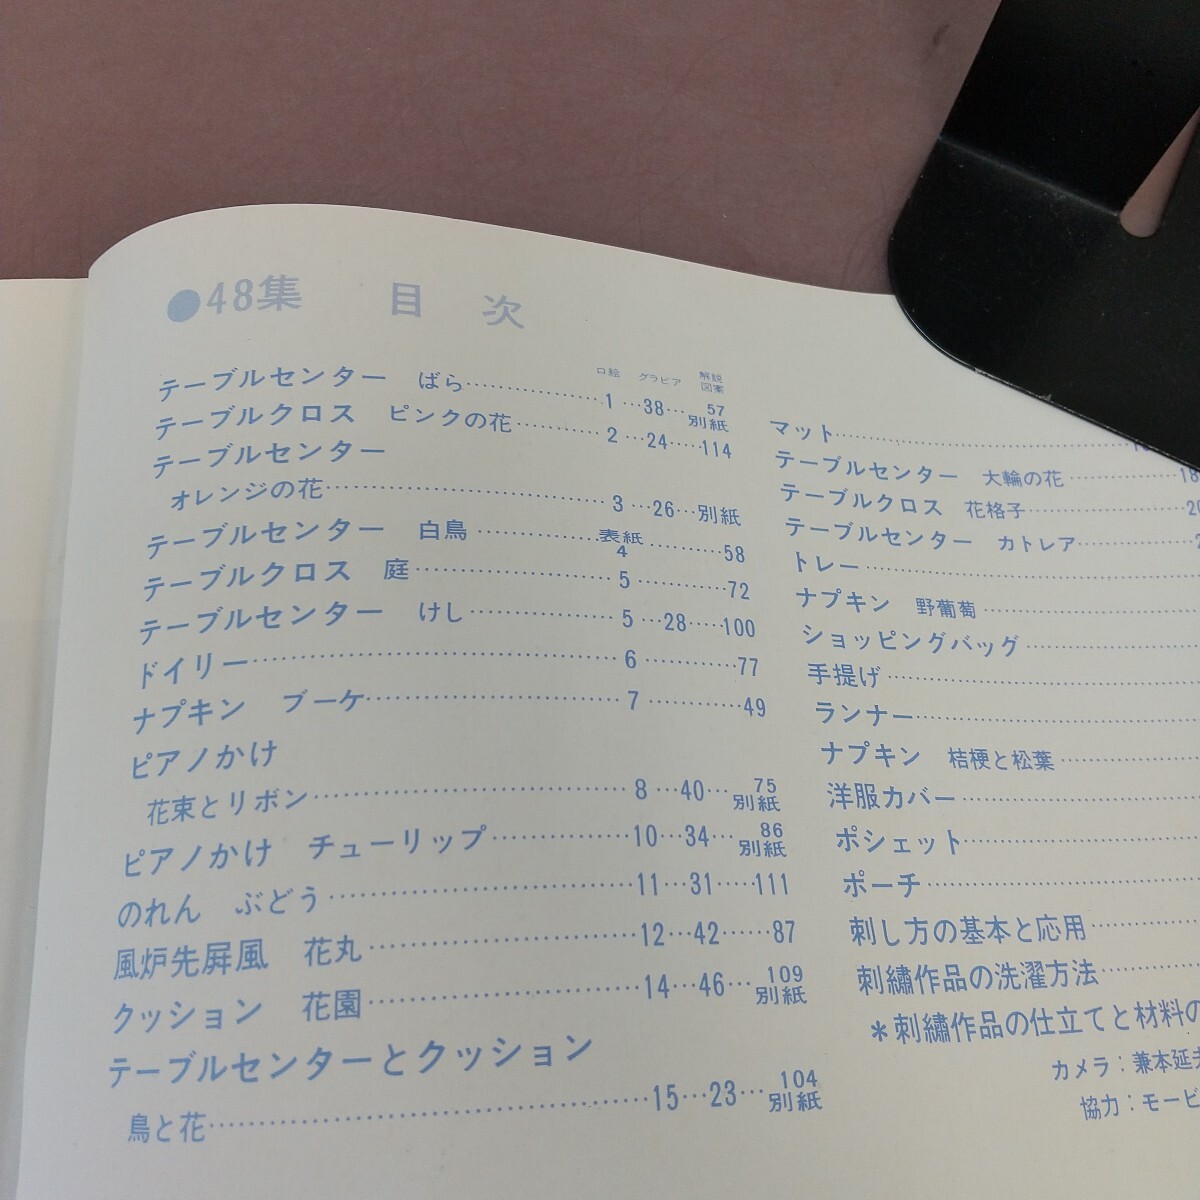 ●48集 目次
口絵 グラビア 解説図案
テーブルセンター ばら……………1…38…57別紙
テーブルクロス ピンクの花………2…24……114
テーブルセンター
オレンジの花……………………3…26…別紙
テーブルセンター 白鳥…………表紙4…………58
テーブルクロス 庭………………5…………72
テーブルセンター けし…………5…28……100
ドイリー……………………………6…………77
ナプキン ブーケ…………………7…………49
ピアノかけ
花束とリボン……………………8…40…75別紙
ピアノかけ チューリップ…………10…34…86別紙
のれん ぶどう……………………11…31……111
風炉先屏風 花丸…………………12…42……87
クッション 花園…………………14…46…109別紙
テーブルセンターとクッション
鳥と花……………………………15…23…104別紙
マット……………………………
テーブルセンター 大輪の花…………18
テーブルクロス 花格子……………
テーブルセンター カトレア…………
トレー……………………………
ナプキン 野葡萄…………………
ショッピングバッグ………………
手提げ……………………………
ランナー…………………………
ナプキン 桔梗と松葉………………
洋服カバー………………………
ポシェット………………………
ポーチ……………………………
刺し方の基本と応用………………
刺繡作品の洗濯方法………………
＊刺繡作品の仕立てと材料の
カメラ：兼本延夫
協力：モービ